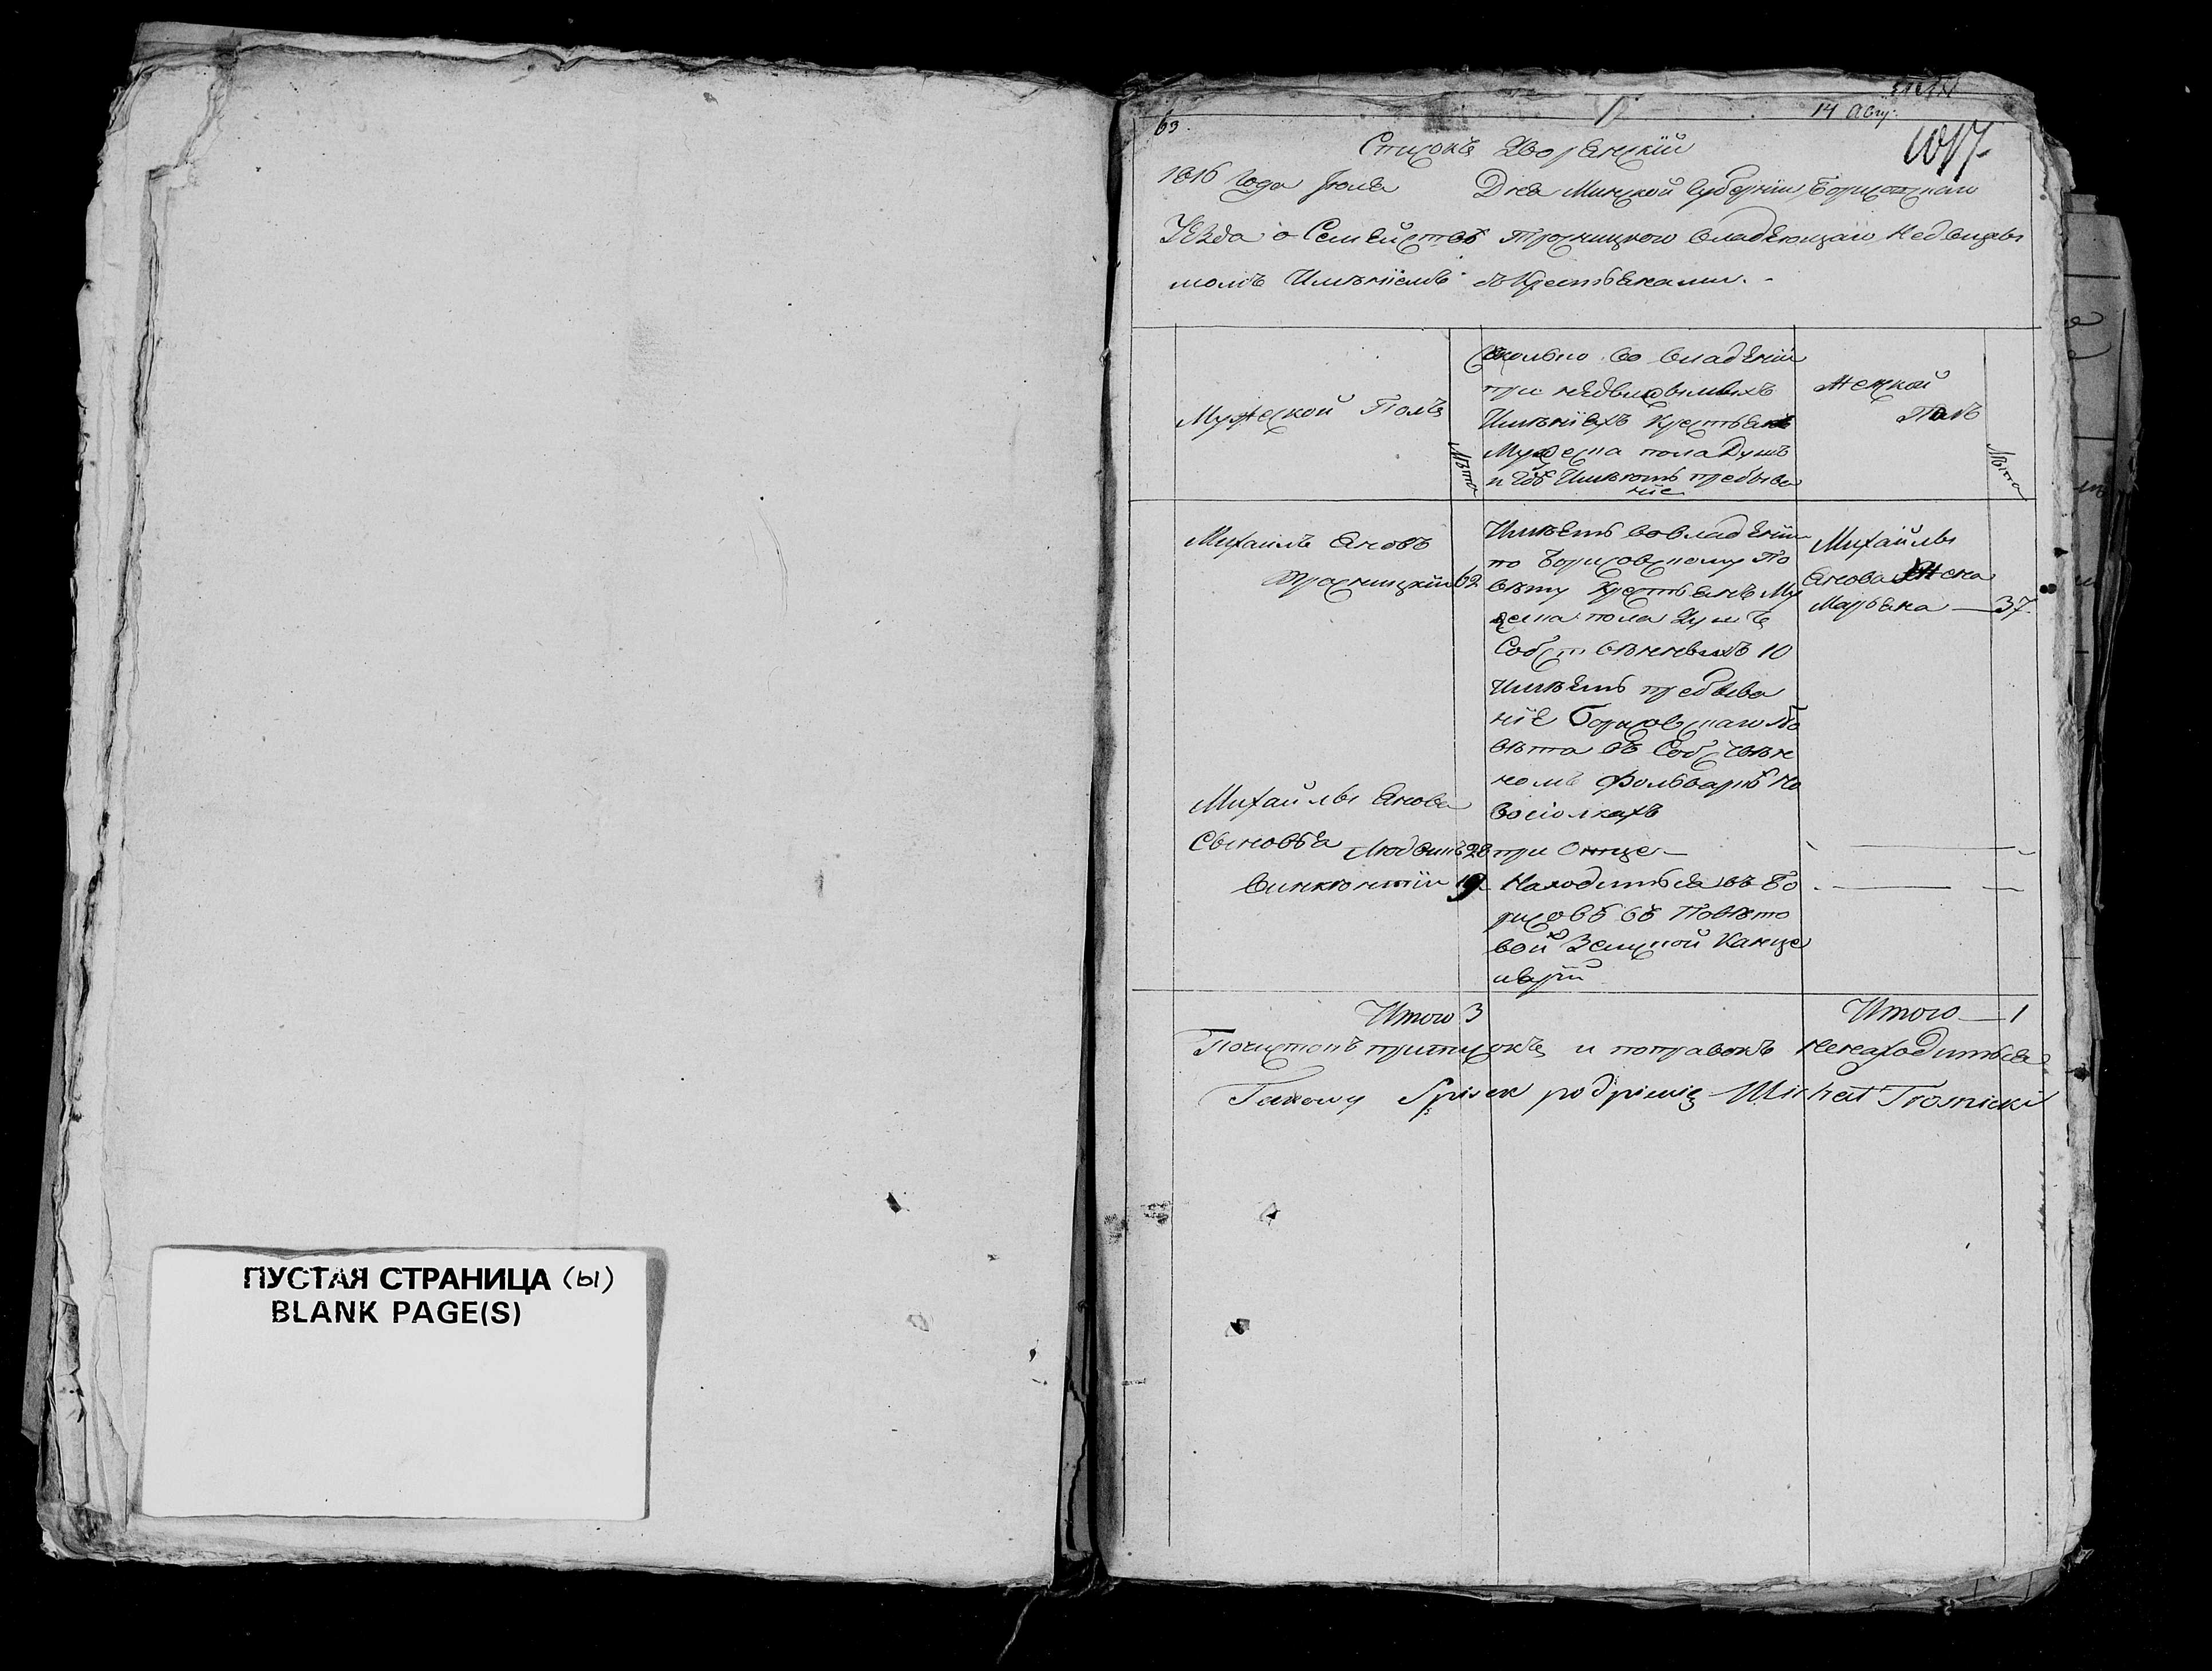 ПУСТАЯ СТРАНИЦА (ы)
BLANK PAGE(S)
63.
14 Авгу:
1017
Списокъ Дворянскій
1816 Года Іюля Дня Минской Губерніи Борисовскаго
Уѣзда о Семействѣ Тросницкого владѣющаго Недвижы
момъ Имѣніемъ съ Крестьянами. -
Мужеской Полъ
Лѣта
Сколько во владѣніи
при недвижымыхъ
Имѣніяхъ Крестьянъ
Мужеска пола Душъ
и гдѣ Имѣютъ пребыва
ніе
Женской
Полъ
Лѣта
Михаилъ Яновъ
Тросницкій 62
Имѣетъ во владѣніи
по Борисовскому По
вѣту Крестьянъ Му
жеска пола Душъ
Собственныхъ 10
Имѣетъ пребыва
ніе Борисовскаго По
вѣта въ Собствен
номъ Фольваркѣ Но
восіолкахъ
Михайлы
Янова Жена
Марьяна — 37.
Михайлы Янова
Сыновья Людвикъ 28 при Отце —
Винкентій 19 Находиться въ Бо
рисовѣ въ Повѣто
вой Земской Канце
ляріи
Итого 3
Итого — 1
Почистокъ приписокъ и поправокъ ненаходиться
Takowy Spisek podpisuię Michał Trosnicki